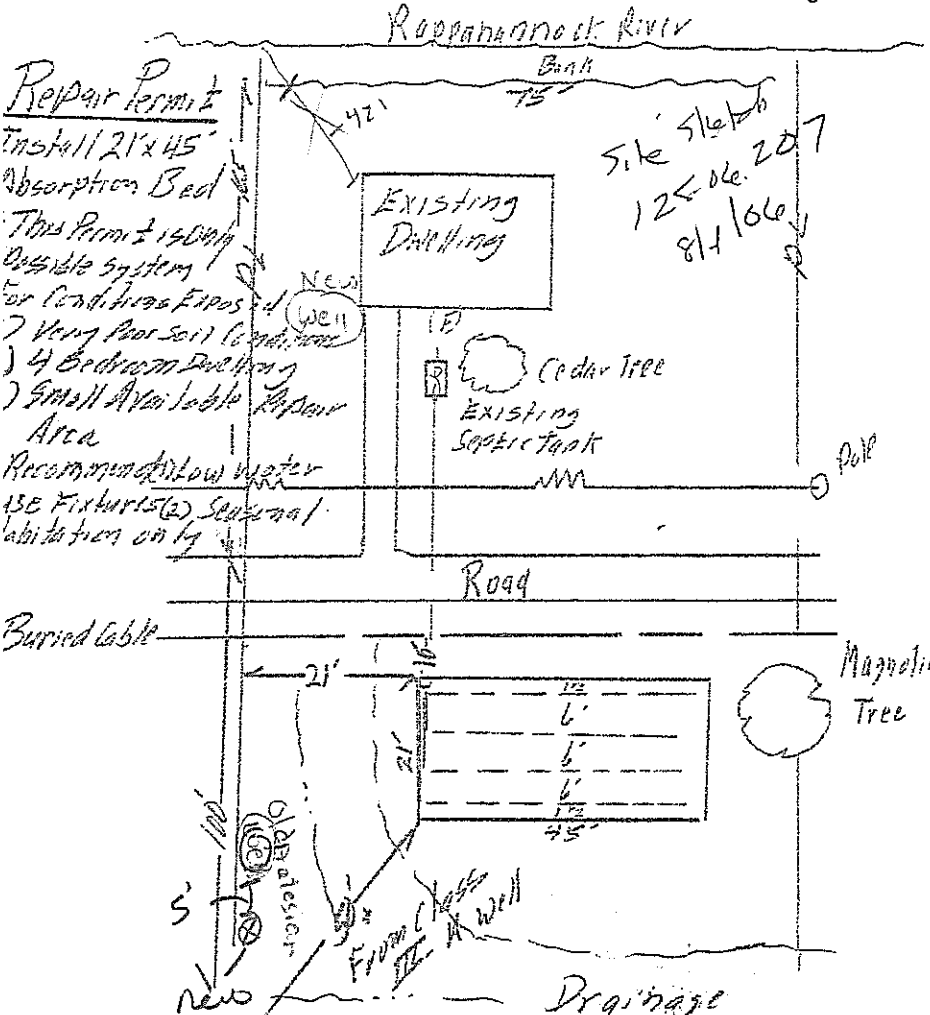 Rappahannock River
Repair Permit
Install 21' x 45'
Absorption Bed
This Permit is Only
Possible System
For Conditions Exposed
) Very Poor Soil Conditions
) 4 Bedroom Dwelling
) Small Available Repair
Area
Low Water
use Fixtures (2) Seasonal
habitation only
Bank
75'
42'
Site Sketch
8/1/06
Existing
Dwelling
New
Well
Cedar Tree
Existing
Septic Tank
Pole
Road
Buried Cable
21'
10'
21'
6'
6'
6'
45'
Magnolia
Tree
Well
5'
From Class
III Well
new
Drainage